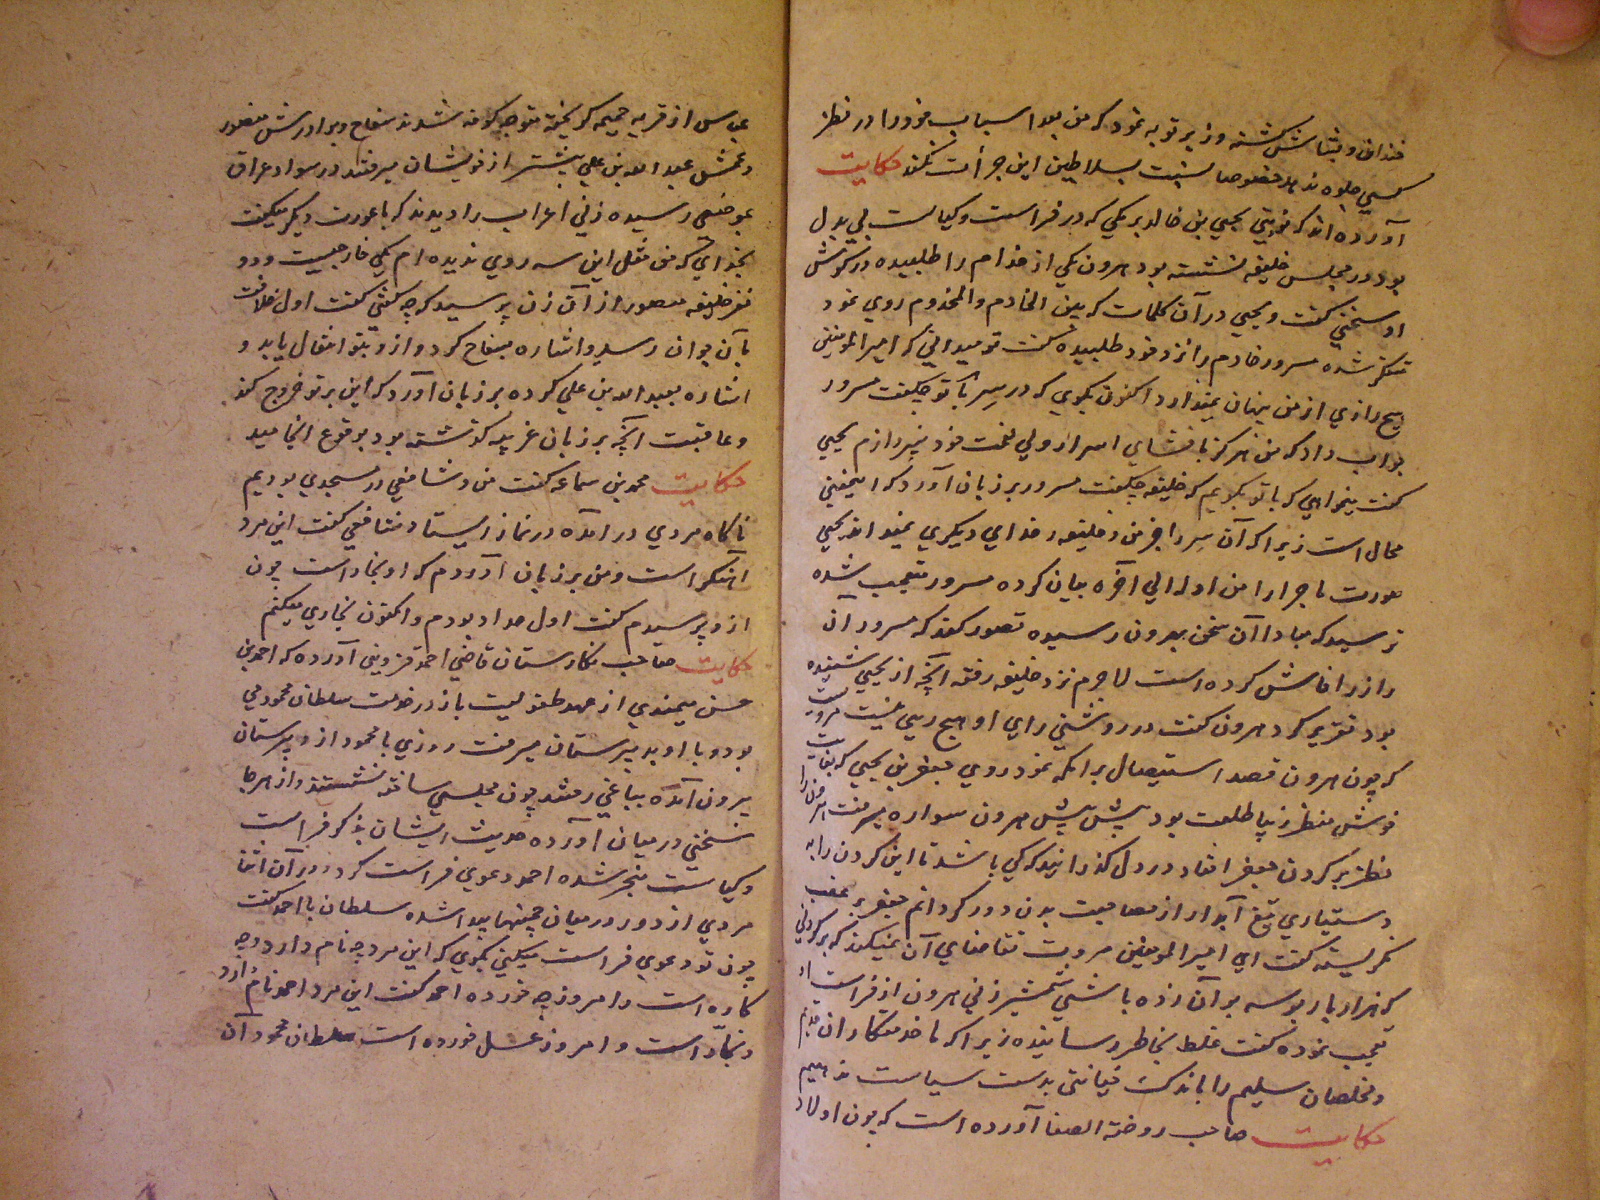 خندان و بشاش گشته وزیر توبه نمود که من بعد اسباب خود را در نظر
کسی جلوه ندهد خصوصا نسبت بسلاطین این جرأت نکند حکایت
آورده اند که نوبتی یحیی بن خالد برمکی که در فراست و کیاست بی بدل
بود در مجلس خلیفه نشسته بود هرون یکی از خدام را طلبیده در گوش
او سخنی گفت و یحیی در آن کلمات که بین الخادم والمخدوم روی نمود
متفکر شده مسرور خادم را نزد خود طلبیده گفت تو میدانی که امیرالمومنین
هیچ رازی از من پنهان نمیدارد اکنون بگوی که در سِر با تو چگفت مسرور
جواب داد که من هرگز بافشای اسرار ولی نعمت خود نپردازم یحیی
گفت میخواهی که با تو بگویم که خلیفه چگفت مسرور بر زبان آورد که اینمعنی
محال است زیرا که آن سِر را جز من و خلیفه و خدای دیگری نمیداند یحیی
صورت ماجرا را من اوله الی آخره بیان کرده مسرور متعجب شده
ترسید که مبادا آن سخن بهرون رسیده تصور کند که مسرور آن
راز را فاش کرده است لاجرم نزد خلیفه رفته آنچه از یحیی شنیده
بود تقریر کرد هرون گفت در روشنی رای او هیچ ریبی نیست مرویست
که چون هرون قصد استیصال برامکه نمود روزی جعفر بن یحیی که بغایت
خوش منظر زیبا طلعت بود پیش پیش هرون سواره میرفت هرون را
نظر بر گردن جعفر افتاد در دل گذرانید که کی باشد تا این گردن را به
دستیاری تیغ آبدار از مصاحبت بدن دور گردانم جعفر بر عقب
نگریسته گفت ای امیرالمومنین مروت تقاضای آن نمیکند که بر گردنی
که هزار بار بوسه بر آن زده باشی شمشیر زنی هرون از فراست او
تعجب نموده گفت غلط بخاطر رسانیده زیرا که ما خدمتکاران قدیم
و مخلصان سلیم را باندک خیانتی بدست سیاست ندهیم
حکایت صاحب روضة الصفا آورده است که چون اولاد
عباس از قریه حمیمه گریخته متوجه کوفه شدند سفاح و برادرش منصور
و عمش عبد الله بن علی پیشتر از خویشان میرفتند در سواد عراق
بموضعی رسیده زنی اعراب را دیدند که با عورت دیگر میگفت
بخدای که من مثل این سه روی ندیده ام یکی خارجیست و دو
نفر خلیفه منصور از آن زن پرسید که چه گفتی گفت اول خلافت
بآن جوان رسد و اشاره بسفاح کرد و از و بتو انتقال یابد و
اشاره بعبد الله بن علی کرده بر زبان آورد که این بر تو خروج کند
و عاقبت آنچه بر زبان عربیه گذشته بود بوقوع انجامید
حکایت محمد بن سماعه گفت من و شافعی در مسجدی بودیم
ناگاه مردی در آمده در نماز ایستاد شافعی گفت این مرد
آهنگر است و من بر زبان آوردم که او نجار است چون
از و پرسیدم گفت اول حداد بودم و اکنون نجاری میکنم
حکایت صاحب نگارستان قاضی احمد قزوینی آورده که احمد بن
حسن میمندی از عهد طفولیت باز در خدمت سلطان محمود می
بود و با او بدبیرستان میرفت روزی با محمود از دبیرستان
بیرون آمده بباغی رفتند چون مجلسی ساخته نشستند و از هر جا
سخنی در میان آورده حدیث ایشان بذکر فراست
و کیاست منجر شده احمد دعوی فراست کرد و در آن اثنا
مردی از دور در میان چمنها پیدا شده سلطان با احمد گفت
چون تو دعوی فراست میکنی بگوی که این مرد چه نام دارد و چه
کاره است و امروز چه خورده احمد گفت این مرد احمد نام دارد
و نجّار است و امروز عسل خورده است سلطان محمود آن